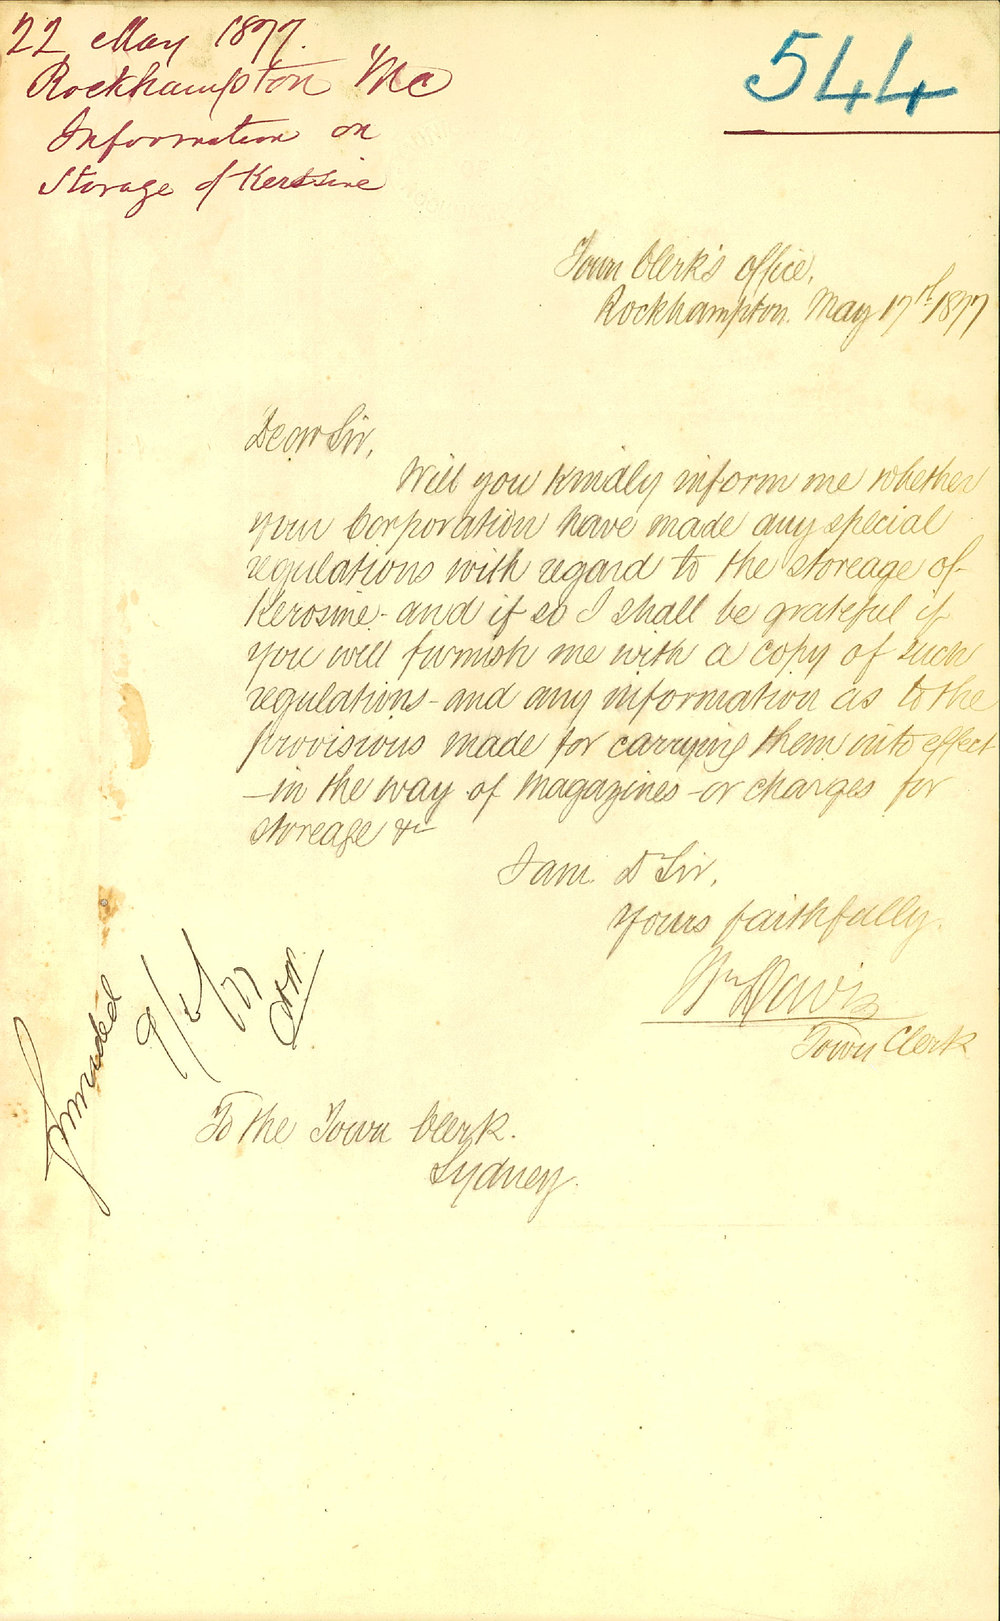 22 May 1877.
Rockhampton Mc
Information on
Storage of Kerosine
544
Town Clerk's office,
Rockhampton. May 17th 1877
Dear Sir,
Will you kindly inform me whether
your Corporation have made any special
regulations with regard to the storeage of
Kerosine - and if so I shall be grateful if
you will furnish me with a copy of such
regulations - and any information as to the
provisions made for carrying them into effect
- in the way of Magazines - or charges for
storeage &c
I am D Sir,
Yours faithfully.
Wm Davis
Town Clerk
To the Town Clerk.
Sydney.